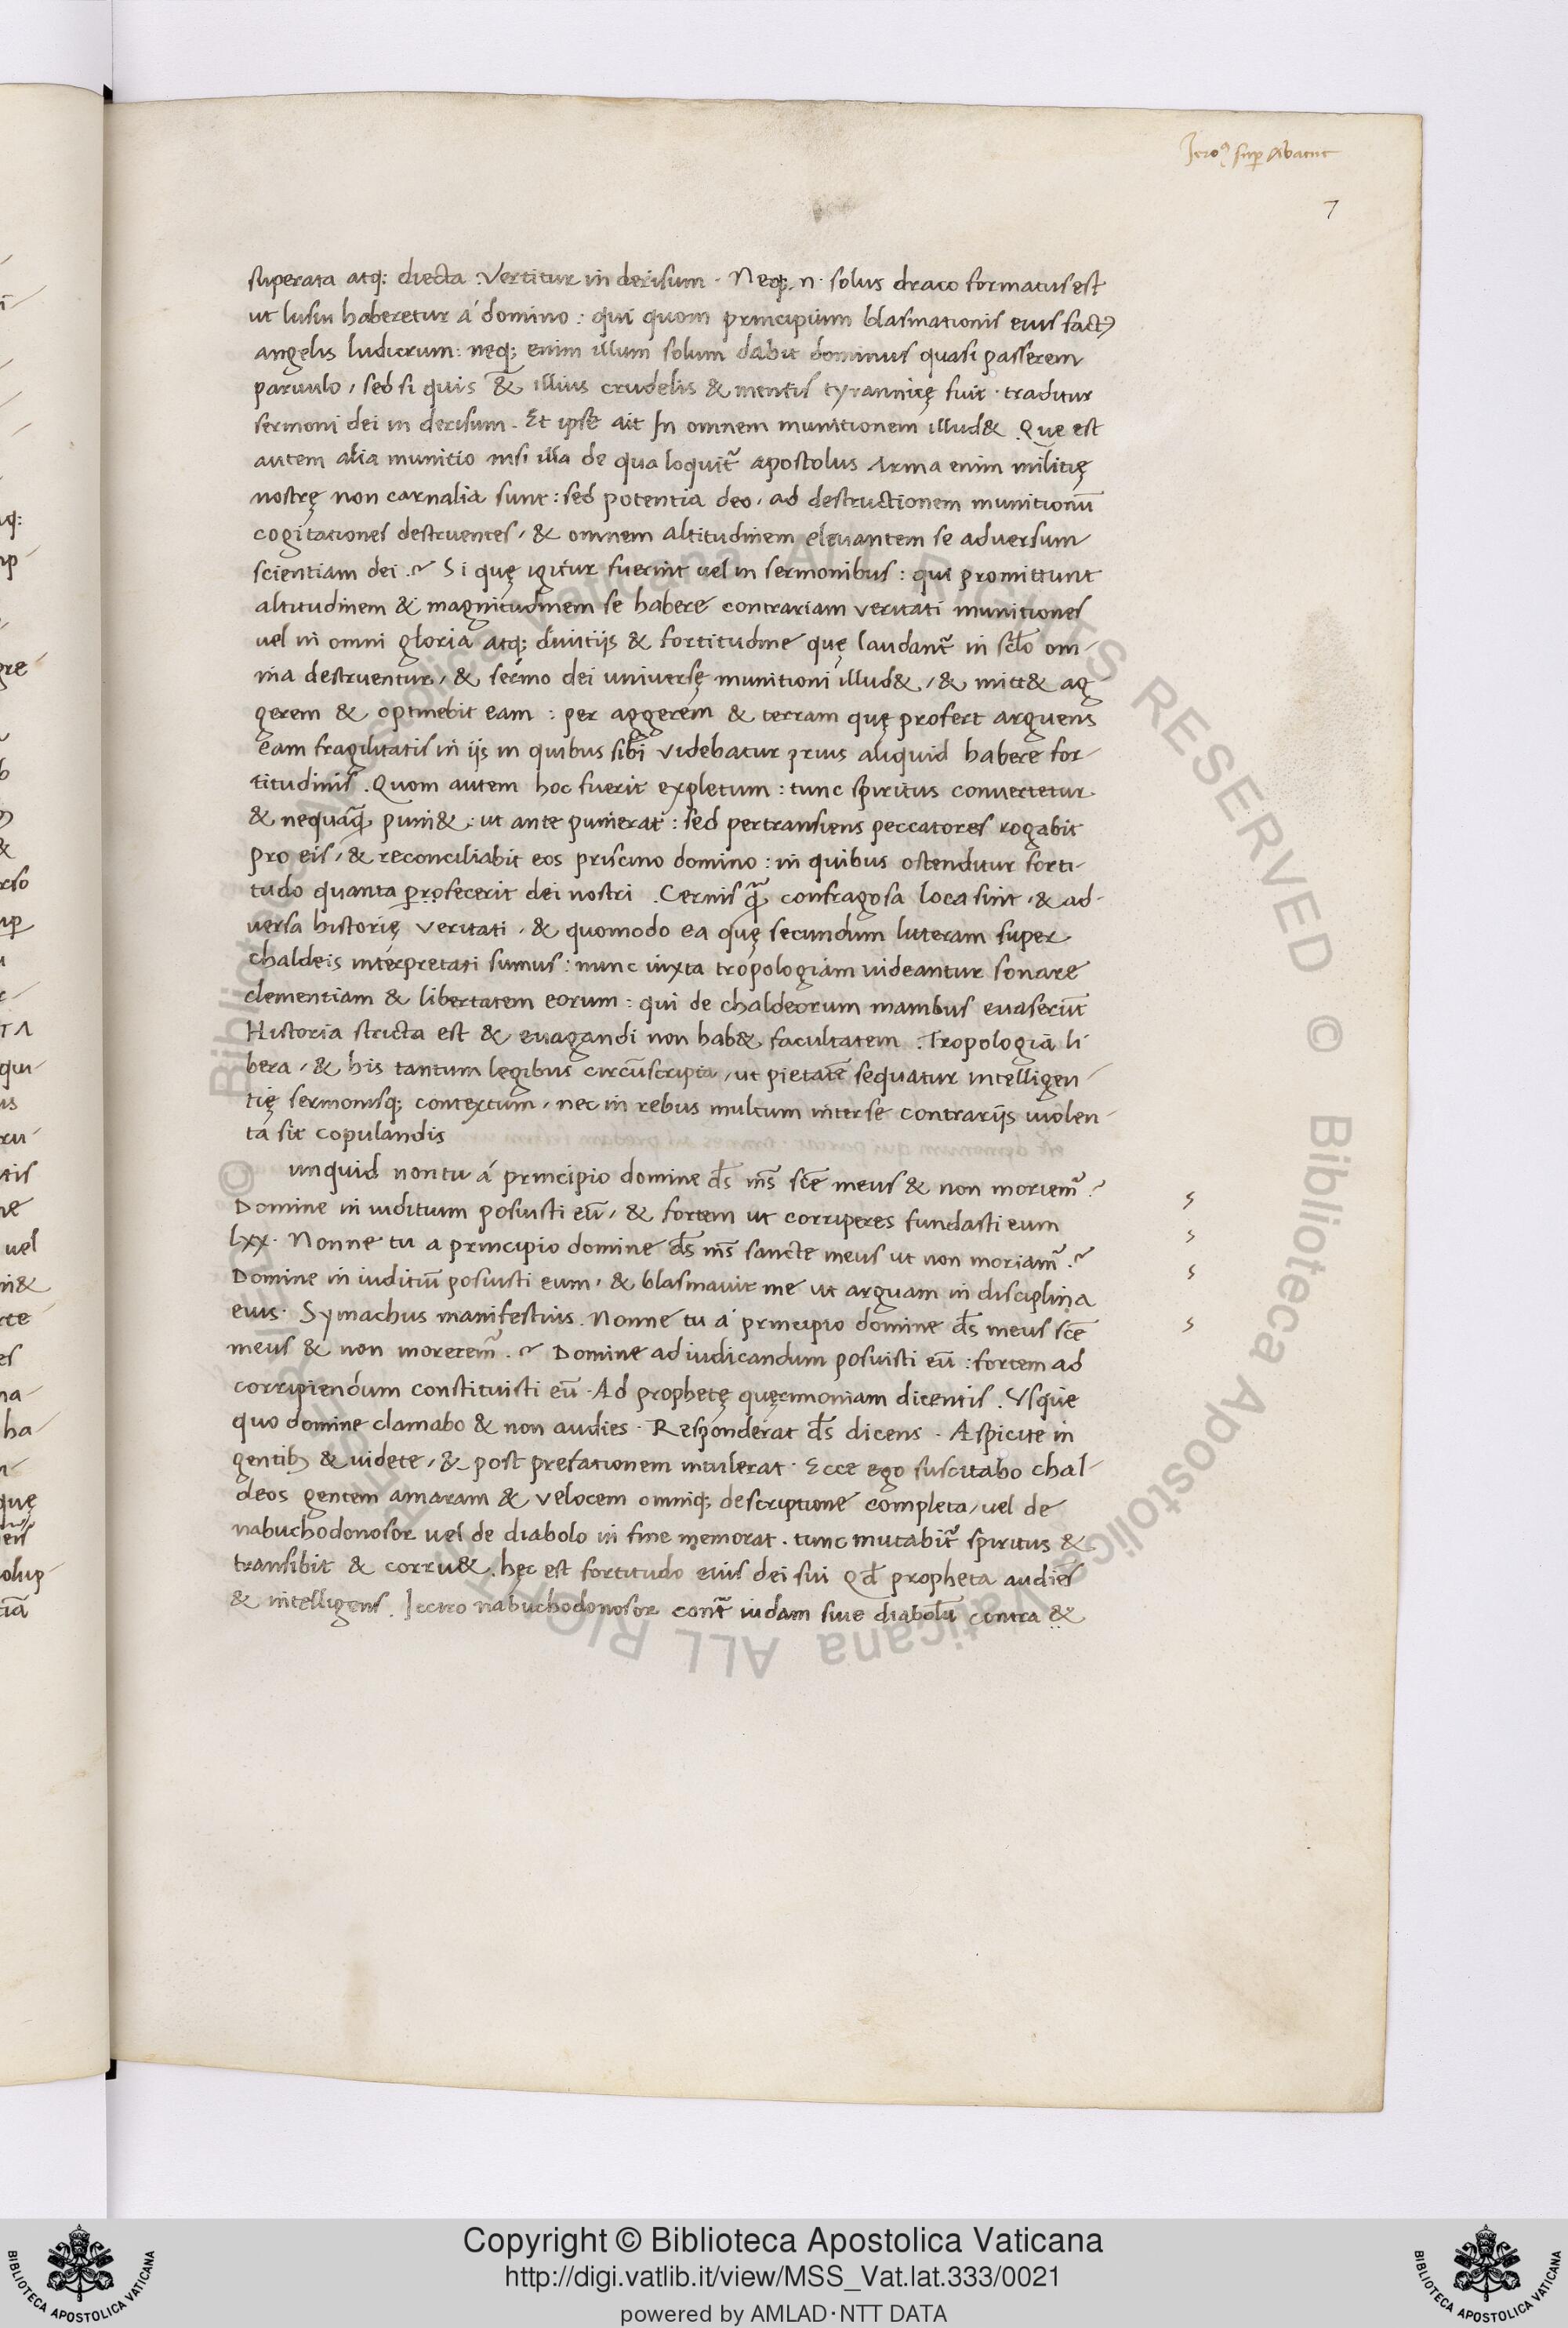 Iero⁹ sup Abacuc
7
superata atq; diecta : Vertitur in derisum · Neq; n· solus draco formatus est
ut lusui haberetur á domino : qui quom principium blasmationis eius fact⁹
angelis ludicrum : neq; enim illum solum dabit dominus quasi passerem
paruulo / sed si quis & illius crudelis & mentis tyrannicę fuit · traditur
sermoni dei in derisum . Et ipse ait In omnem munitionem illud& . Que est
autem alia munitio nisi illa de qua loquit᷑ apostolus Arma enim militię
nostrę non carnalia sunt : sed potentia deo / ad destructionem munitionū
cogitationes destruentes / & omnem altitudinem eleuantem se adversum
scientiam dei . Si quę igitur fuerint uel in sermonibus : qui promittunt
altitudinem & magnitudinem se habere contrariam veritati munitiones
uel in omni gloria atq; diuitijs & fortitudine quę laudant᷑ in scl̄o om-
nia destruentur / & sermo dei universę munitioni illud& / & mitt& ag
gerem & optinebit eam : per aggerem & terram quę profert arguens
eam fragilitatis in ijs in quibus sibi videbatur prius aliquid habere for-
titudinis . Quom autem hoc fuerit expletum : tunc spiritus convertetur
& nequaq̄ puni& : ut ante punierat : sed pertransiens peccatores rogabit
pro eis / & reconciliabit eos priscino domino : in quibus ostenditur forti-
tudo quanta profecerit dei nostri . Cernis q̄ confragosa loca sint · & ad-
versa historię veritati / & quomodo ea quę secundum literam super
chaldeis interpretati sumus : nunc iuxta tropologiam uideantur sonare
clementiam & libertatem eorum : qui de chaldeorum manibus evaserūt
Historia stricta est & euagandi non hab& facultatem . Tropologia li
bera / & his tantum legibus circūscripta / ut pietatē sequatur intelligen-
tię sermonisq; contextum / nec in rebus multum inter se contrarijs uiolen-
ta sit copulandis
unquid non tu á principio domine ds̄ ms̄ scē meus & non moriem᷑ ?
Domine in iuditium posuisti eū / & fortem ut corriperes fundasti eum
lxx · Nonne tu a principio domine ds̄ ms̄ sancte meus ut non moriam᷑ ?
Domine in iuditiū posuisti eum / & blasmavit me ut arguam in disciplina
eius · Symachus manifestius . Nonne tu á principio domine ds̄ meus scē
meus & non morerem᷑ . Domine ad iudicandum posuisti eū : fortem ad
corripiendum constituisti eū · Ad prophetę quęrimoniam dicentis . Usque
quo domine clamabo & non audies · Responderat ds̄ dicens · Aspicite in
gentib⁹ & uidete / & post prefationem intulerat · Ecce ego suscitabo chal-
deos gentem amaram & velocem omniq; descriptione completa / uel de
nabuchodonosor uel de diabolo in fine memorat . tunc mutabit᷑ spiritus &
transibit & corru& . hęc est fortitudo eius dei sui Qd̄ propheta audiēs
& intelligens . Iecirco nabuchodonosor cont᷑ iudam siue diabolū contra &
Copyright © Biblioteca Apostolica Vaticana
http://digi.vatlib.it/view/MSS_Vat.lat.333/0021
powered by AMLAD·NTT DATA
BIBLIOTECA APOSTOLICA VATICANA
BIBLIOTECA APOSTOLICA VATICANA